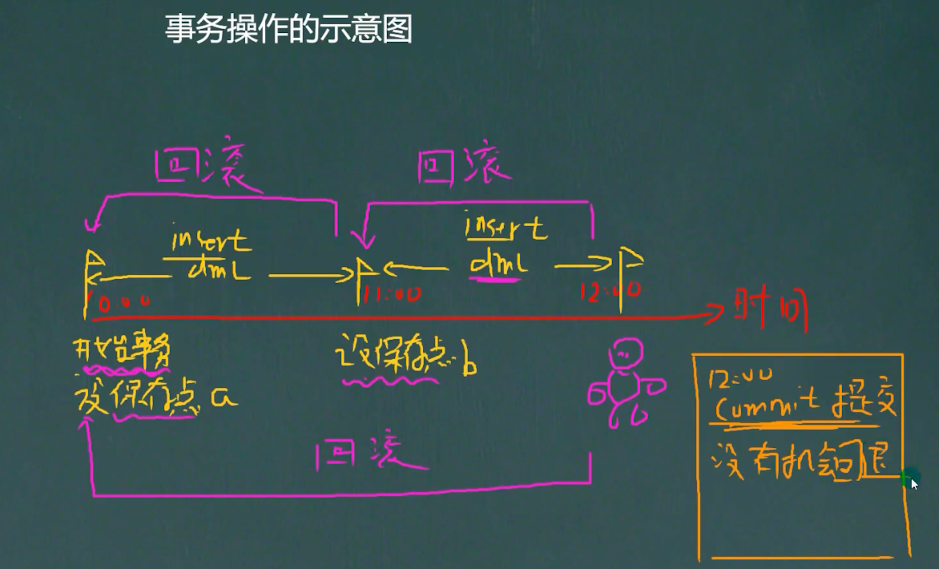 事务操作的示意图
回滚
回滚
insert
dml
insert
dml
10:00
11:00
12:00
时间
开始事务
设保存点 a
设保存点 b
回滚
12:00
Commit 提交
没有机会回退